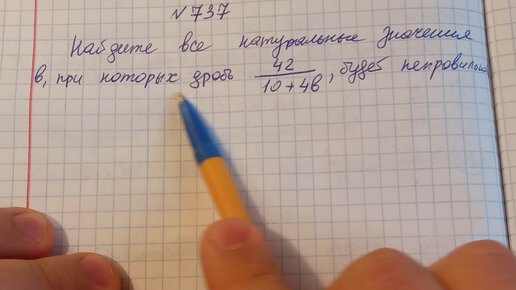 N 737
Найдите все натуральные значения
в, при которых дробь 42/10+4в, будет неправильной